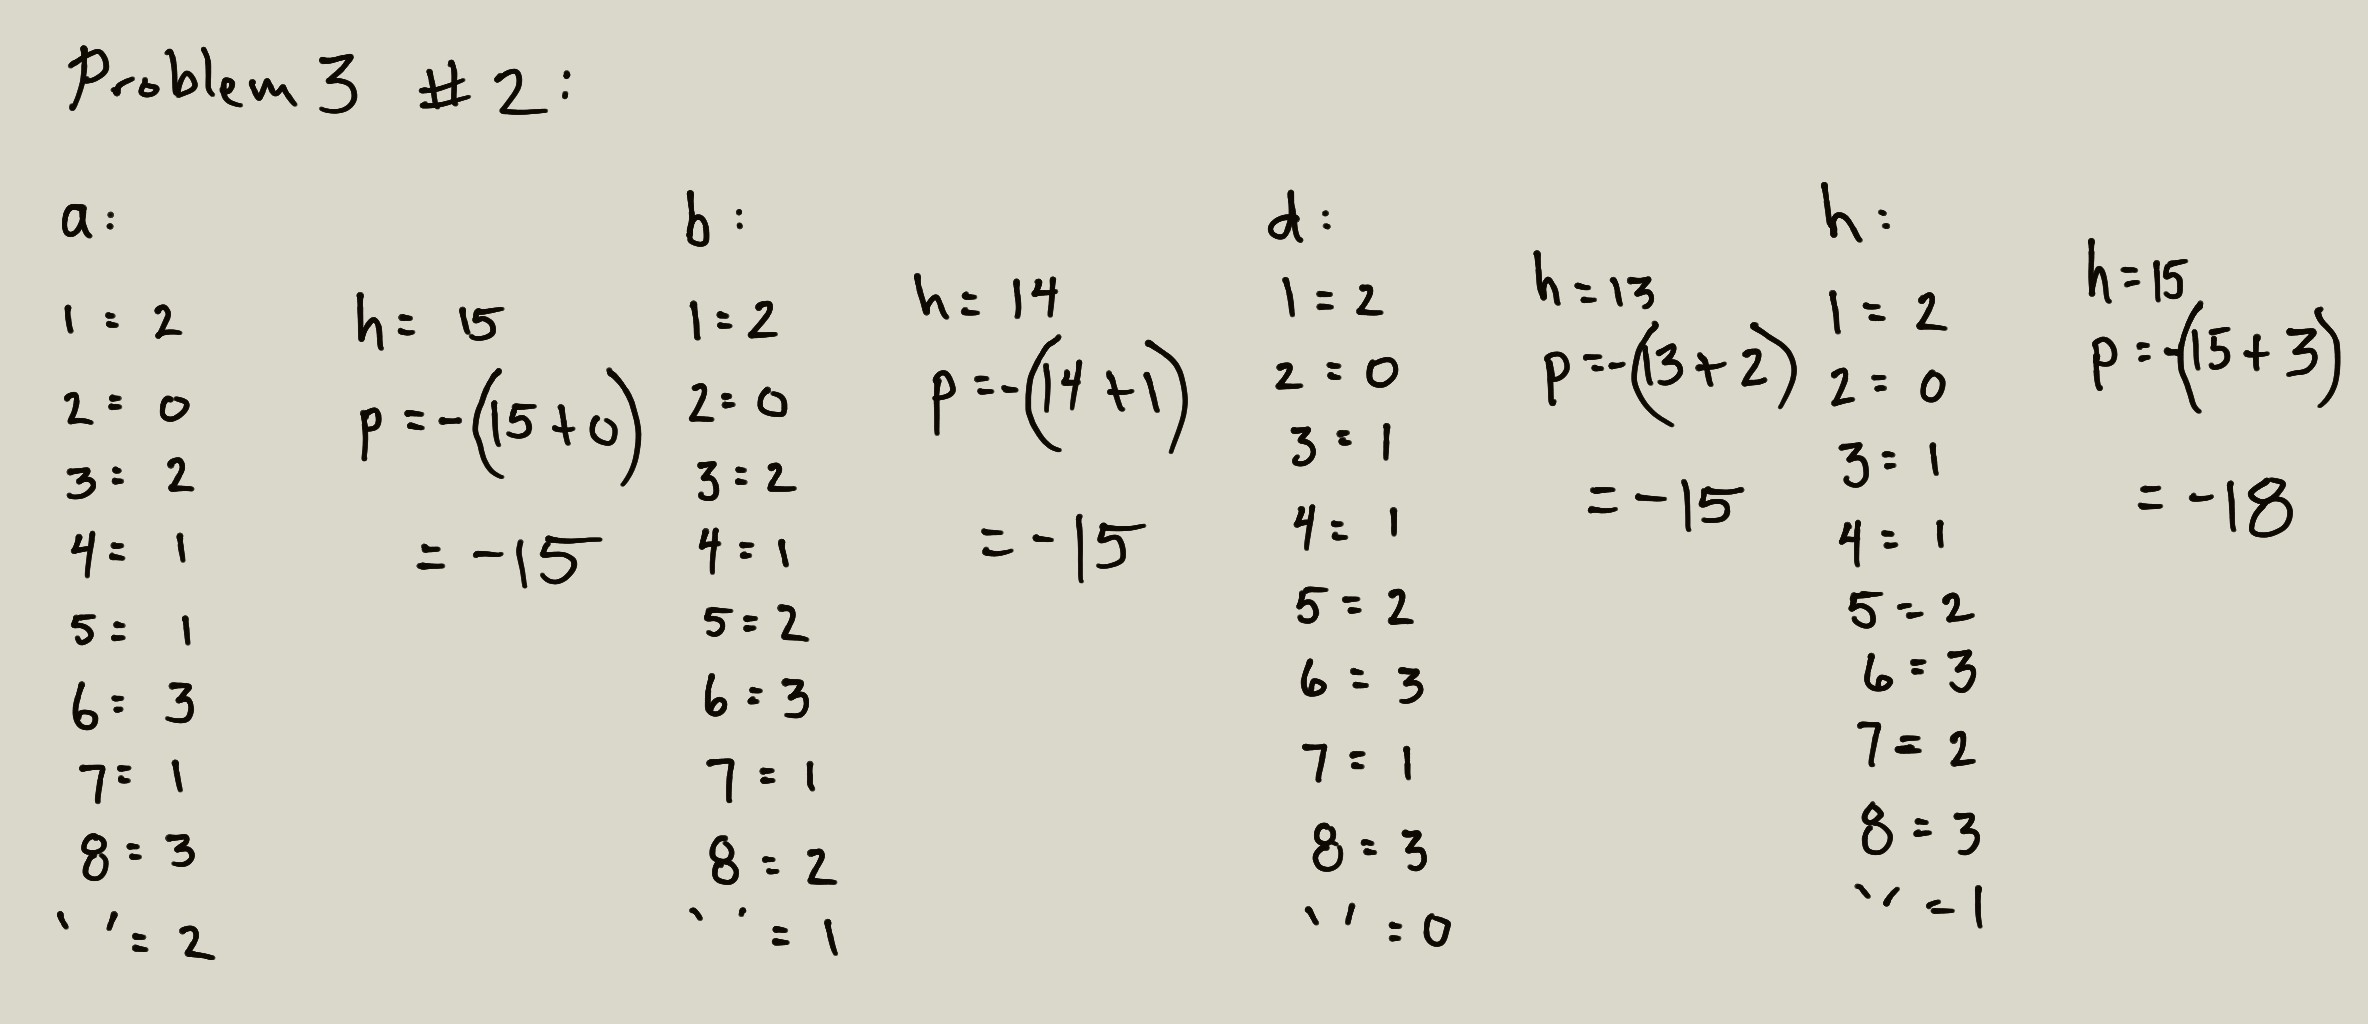 Problem 3 #2:
a:
1 = 2
2 = 0
3 = 2
4 = 1
5 = 1
6 = 3
7 = 1
8 = 3
' ' = 2
h = 15
p = -(15 + 0)
= -15
b:
1 = 2
2 = 0
3 = 2
4 = 1
5 = 2
6 = 3
7 = 1
8 = 2
' ' = 1
h = 14
p = -(14 + 1)
= -15
d:
1 = 2
2 = 0
3 = 1
4 = 1
5 = 2
6 = 3
7 = 1
8 = 3
' ' = 0
h = 13
p = -(13 + 2)
= -15
h:
1 = 2
2 = 0
3 = 1
4 = 1
5 = 2
6 = 3
7 = 2
8 = 3
' ' = 1
h = 15
p = -(15 + 3)
= -18